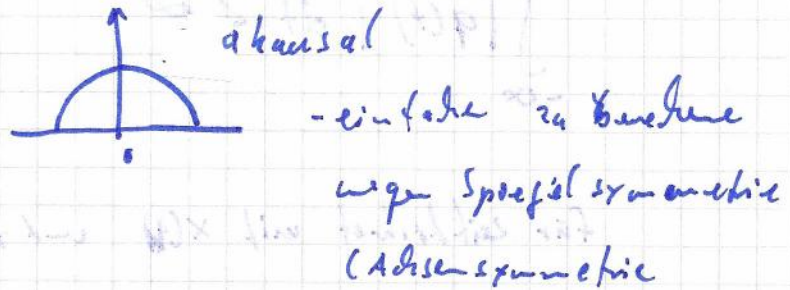 akausal
-einfacher zu berechnen
wegen Spiegelsymmetrie
(Achsensymmetrie
0